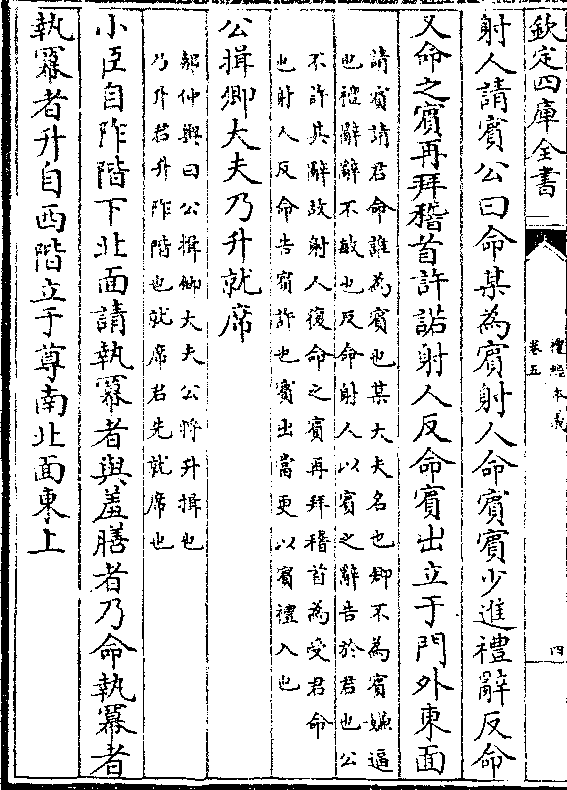 欽定四庫全書
禮經本義
卷五
四
射人請賓公曰命某為賓射人命賓賓少進禮辭反命
又命之賓再拜稽首許諾射人反命賓出立于門外東面
請賓請君命誰為賓也某大夫名也卿不為賓嫌逼
也禮辭辭不敏也反命射人以賓之辭告於君也公
不許其辭故射人復命之賓再拜稽首為受君命
也射人反命告賓許也賓出當更以賓禮入也
公揖卿大夫乃升就席
郝仲輿曰公揖卿大夫公將升揖也
乃升君升阼階也就席君先就席也
小臣自阼階下北面請執冪者與羞膳者乃命執冪者
執冪者升自西階立于尊南北面東上